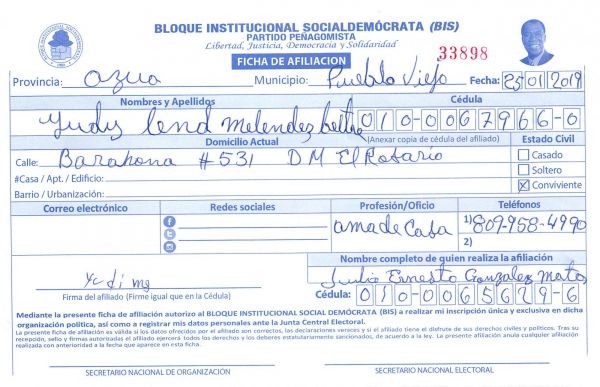 BLOQUE INSTITUCIONAL SOCIALDEMÓCRATA (BIS)
PARTIDO PEÑAGOMISTA
Libertad, Justicia, Democracia y Solidaridad
FICHA DE AFILIACION
33898
Provincia: Azua Municipio: Pueblo Viejo Fecha: 25 01 2019
Nombres y Apellidos Cédula
Yudy Melendez 010-0067966-0
Domicilio Actual (Anexar copia de cédula del afiliado) Estado Civil
Calle: Barahona #531 DM El Rosario
Casado
#Casa / Apt. / Edificio: Soltero
Barrio / Urbanización: Conviviente
Correo electrónico Redes sociales Profesión/Oficio Teléfonos
ama de Casa 1) 809-958-4990
2)
Nombre completo de quien realiza la afiliación
Julio Ernesto Gonzalez Matos
Firma del afiliado (Firme igual que en la Cédula) Cédula: 010-0065629-6
Mediante la presente ficha de afiliación autorizo al BLOQUE INSTITUCIONAL SOCIAL DEMÓCRATA (BIS) a realizar mi inscripción única y exclusiva en dicha
organización política, así como a registrar mis datos personales ante la Junta Central Electoral.
La presente ficha de afiliación es válida si los datos ofrecidos por el afiliado son correctos, las declaraciones verdaderas y si el afiliado tiene el disfrute de sus derechos civiles y políticos. Tras su
recepción, sello y firmas autorizadas el afiliado ejercerá todos los derechos y los deberes estatutariamente sancionados, de acuerdo a la ley. La presente afiliación anula cualquier afiliación
realizada con anterioridad a la fecha que aparece en esta ficha.
SECRETARIO NACIONAL DE ORGANIZACIÓN SECRETARIO NACIONAL ELECTORAL